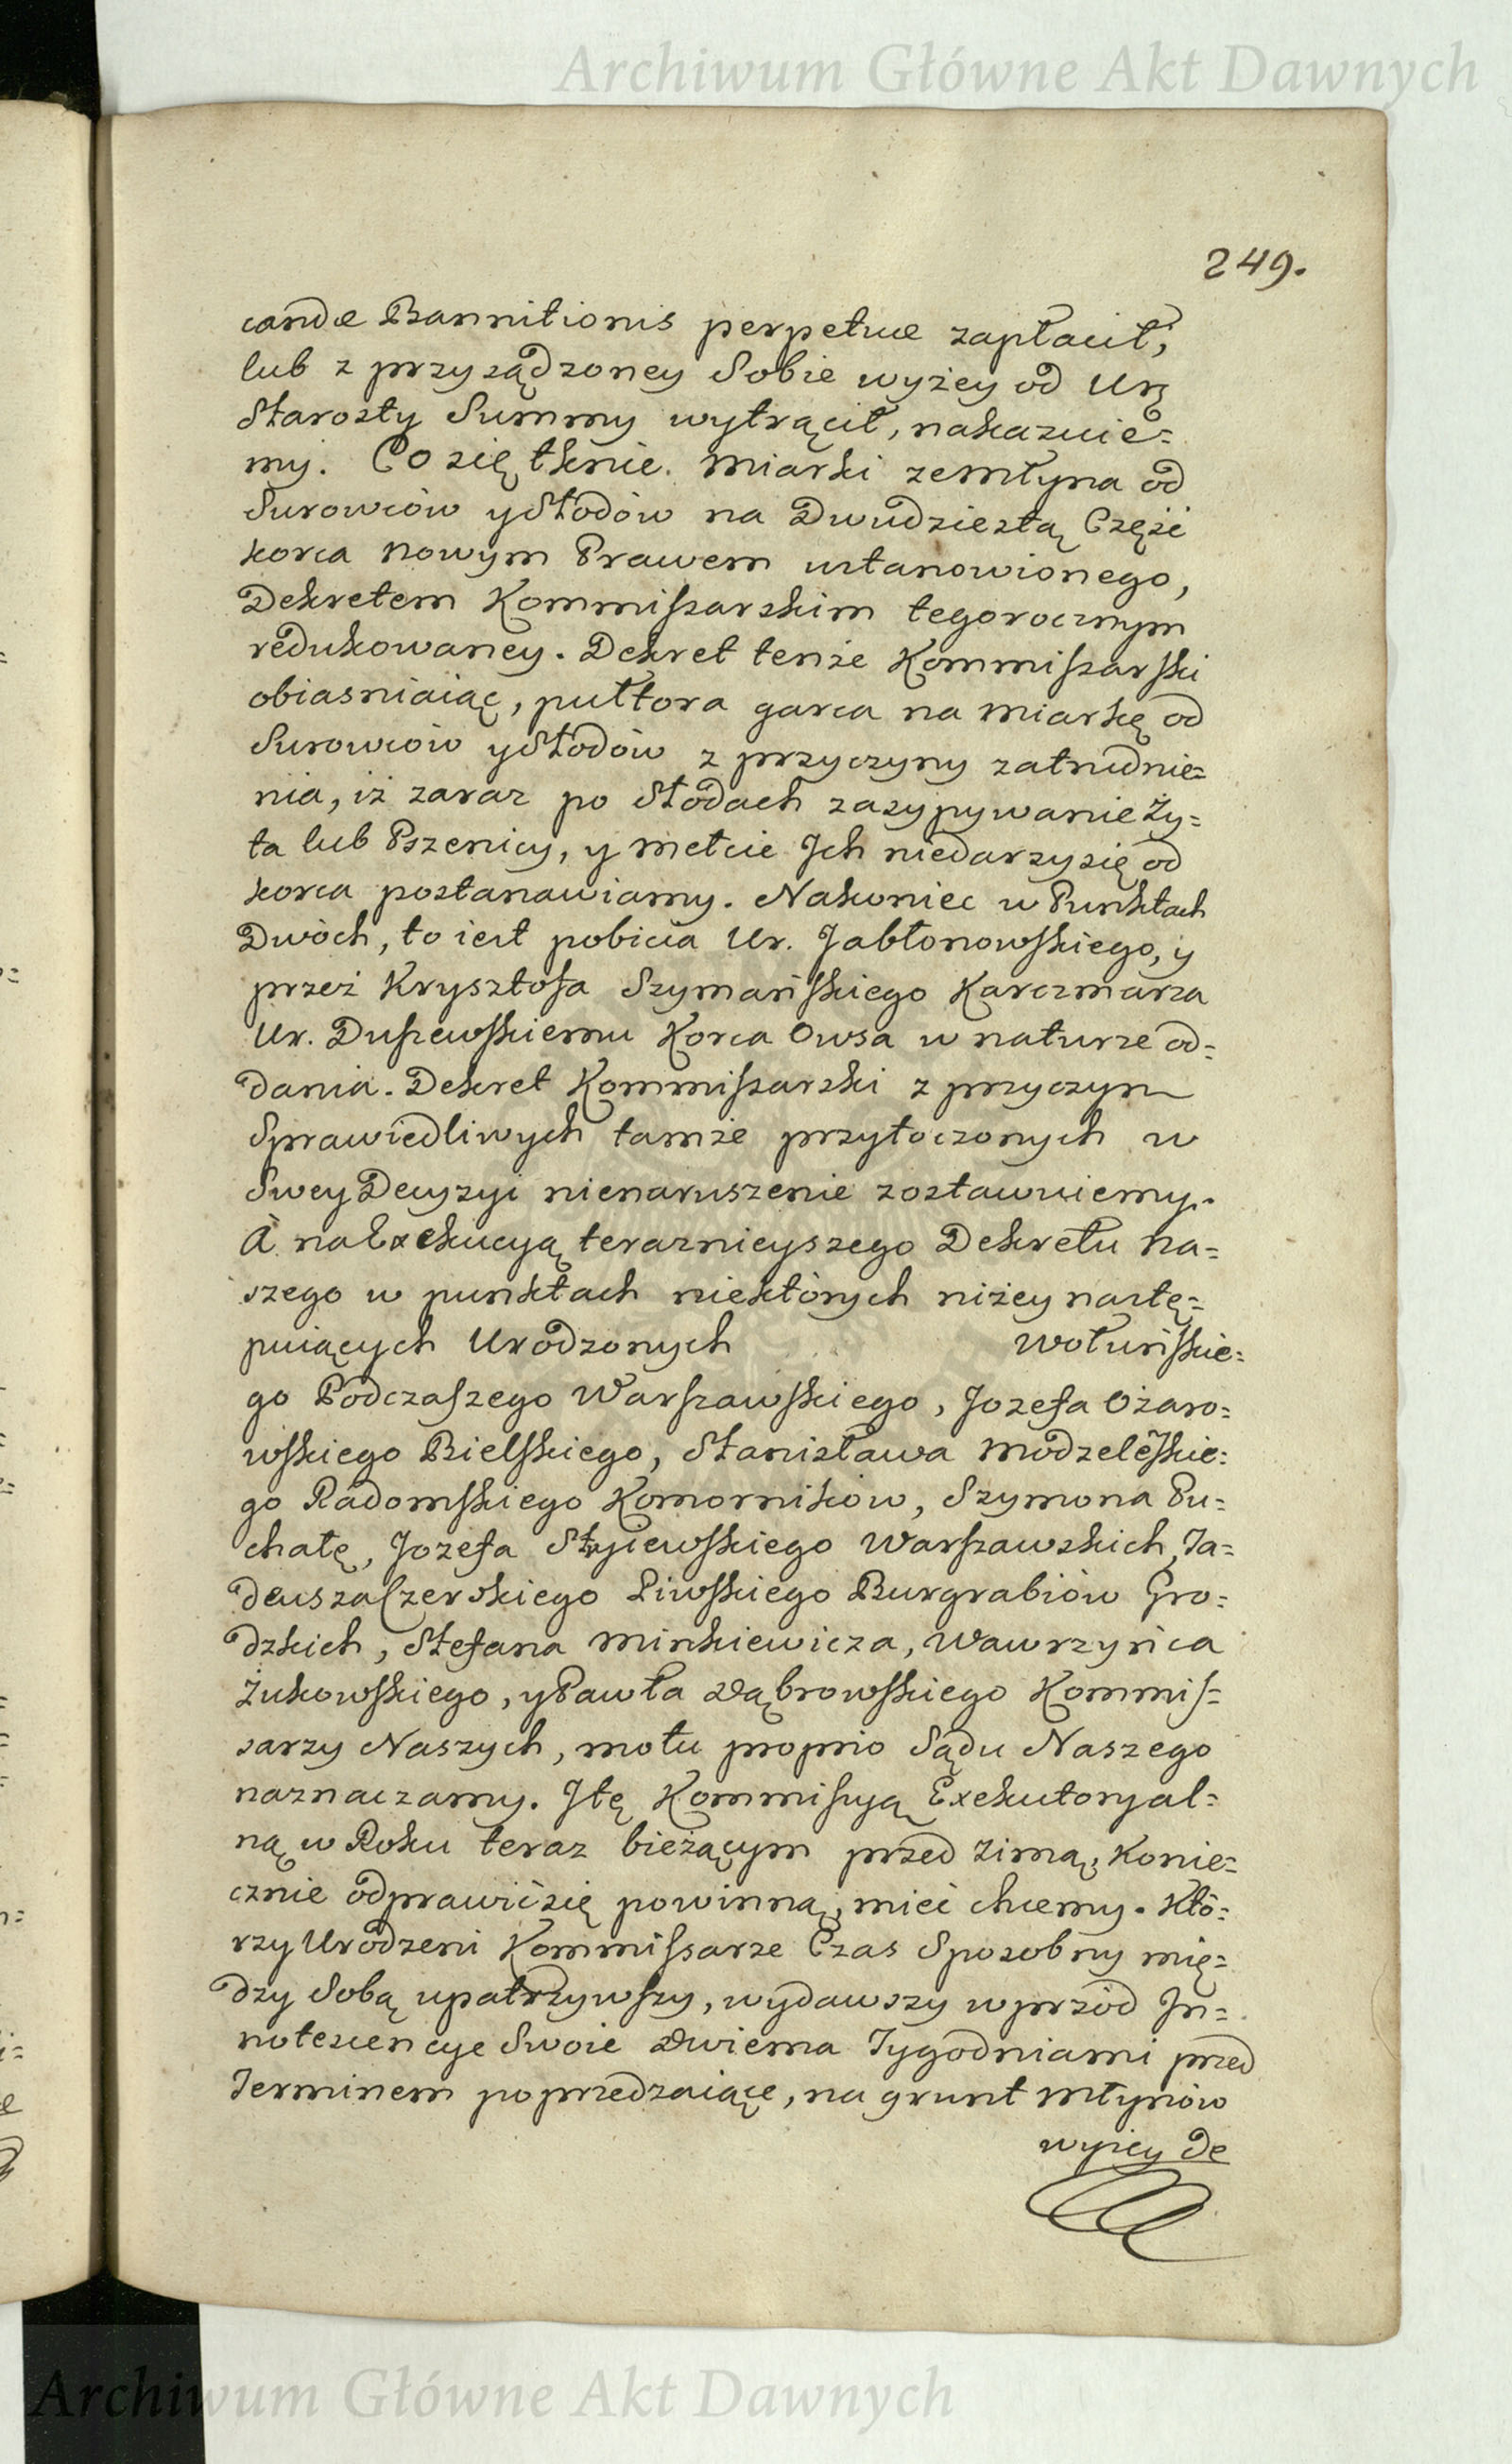 Archiwum Główne Akt Dawnych
249.
candæ Bannitionis perpetuæ zapłacił,
lub z przysądzoney Sobie wyżey od Ur.
Starosty Summy wytrącił, nakazuie=
my. Co się tknie. Miarki zemłyna od
Surowców y Słodów na Dwudziestą Część
korca nowym Prawem ustanowionego,
Dekretem Kommissarskim tegorocznym
redukowaney. Dekret tenże Kommissarski
obiasniaiąc, pułtora garca na Miarkę od
Surowców y Słodów z przyczyny zatrudnie=
nia, iż zaraz po Słodach zasypywanie Ży=
ta lub Pszenicy, y mełcie Ich niedarzy się od
korca postanawiamy. Nakoniec w Punktach
Dwóch, to iest pobicia Ur. Jabłonowskiego, y
przez Krysztofa Szymańskiego Karczmarza
Ur. Duszewskiemu Korca Owsa w naturze od=
dania. Dekret Kommissarski z przyczyn
Sprawiedliwych tamże przytoczonych w
Swey Decyzyi nienaruszenie zostawuiemy.
A na Exekucyą teraznieyszego Dekretu Na=
szego w punktach niektórych niżey nastę=
puiących Urodzonych Wołuńskie=
go Podczaszego Warszawskiego, Jozefa Ożaro=
wskiego Bielskiego, Stanisława Modzeleskie=
go Radomskiego Komorników, Szymona Pu=
chałę, Jozefa Stryiewskiego Warszawskich, Ta=
deusza Szerskiego Liwskiego Burgrabiów Gro=
dzkich, Stefana Minkiewicza, Wawrzyńca
Żukowskiego, y Pawła Dąbrowskiego Kommis=
sarzy Naszych, motu proprio Sądu Naszego
naznaczamy. Itę Kommissyą Exekutoryal=
ną w Roku teraz bieżącym przed Zimą, Konie=
cznie odprawić się powinną, mieć chcemy. Któ=
rzy Urodzeni Kommissarze Czas Sposobny mię=
dzy Sobą upatrzywszy, wydawszy wprzód In=
notescencye Swoie Dwiema Tygodniami przed
Terminem poprzedzaiące, na grunt Młynów
wyżey de
Archiwum Główne Akt Dawnych